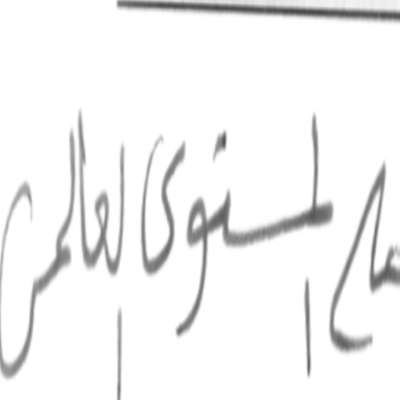 على المستوى العالمي